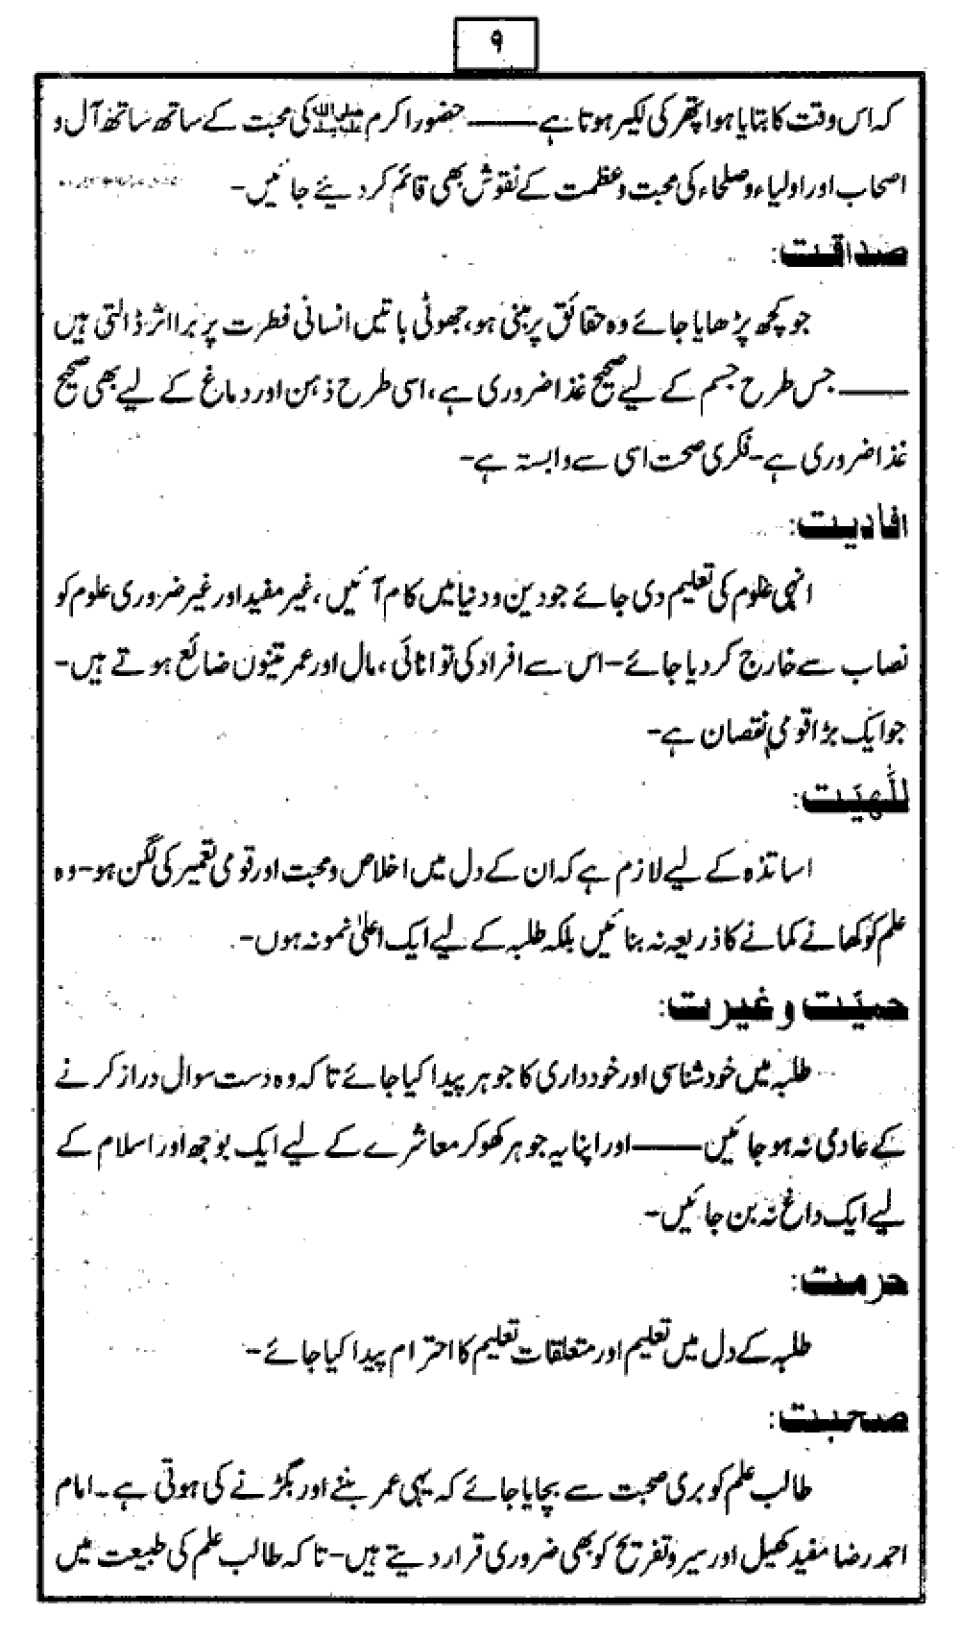 ۹
کہ اس وقت کا بتایا ہوا پتھر کی لکیر ہوتا ہے ——— حضور اکرم ﷺ کی محبت کے ساتھ ساتھ آل و
اصحاب اور اولیاء و صلحاء کی محبت و عظمت کے نقوش بھی قائم کر دیئے جائیں-
صداقت:
جو کچھ پڑھایا جائے وہ حقائق پر مبنی ہو، جھوٹی باتیں انسانی فطرت پر برا اثر ڈالتی ہیں
——— جس طرح جسم کے لیے صحیح غذا ضروری ہے، اسی طرح ذہن اور دماغ کے لیے بھی صحیح
غذا ضروری ہے- فکری صحت اسی سے وابستہ ہے-
افادیت:
انہی علوم کی تعلیم دی جائے جو دین و دنیا میں کام آئیں، غیر مفید اور غیر ضروری علوم کو
نصاب سے خارج کر دیا جائے- اس سے افراد کی توانائی، مال اور عمر تینوں ضائع ہوتے ہیں-
جو ایک بڑا قومی نقصان ہے-
للّٰھیّت:
اساتذہ کے لیے لازم ہے کہ ان کے دل میں اخلاص و محبت اور قومی تعمیر کی لگن ہو- وہ
علم کو کھانے کمانے کا ذریعہ نہ بنائیں بلکہ طلبہ کے لیے ایک اعلیٰ نمونہ ہوں-
حمیّت و غیرت:
طلبہ میں خود شناسی اور خودداری کا جوہر پیدا کیا جائے تا کہ وہ دست سوال دراز کرنے
کے عادی نہ ہو جائیں ——— اور اپنا یہ جوہر کھو کر معاشرے کے لیے ایک بوجھ اور اسلام کے
لیے ایک داغ نہ بن جائیں-
حرمت:
طلبہ کے دل میں تعلیم اور متعلقات تعلیم کا احترام پیدا کیا جائے-
صحبت:
طالب علم کو بری صحبت سے بچایا جائے کہ یہی عمر بننے اور بگڑنے کی ہوتی ہے- امام
احمد رضا مفید کھیل اور سیر و تفریح کو بھی ضروری قرار دیتے ہیں- تا کہ طالب علم کی طبیعت میں